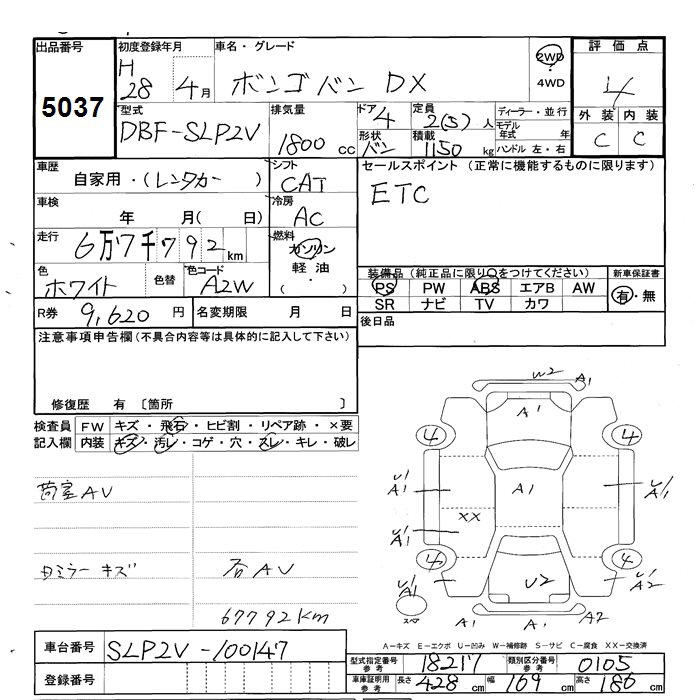 出品番号 初度登録年月 車名・グレード 2WD 評価点
5037 H28 4月 ボンゴバン DX 4WD 4
型式 排気量 ドア 定員 ディーラー・並行 外装 内装
DBF-SLP2V 1800cc 4 2(5)人 モデル年式 年 C C
形状 バン 積載 1150kg ハンドル 左・右
車歴 シフト セールスポイント (正常に機能するものに限ります)
自家用・(レンタカー) CAT ETC
車検 冷房
年 月(日) AC
走行 燃料
6万7千792km ガソリン
軽油
(・)
色 色替 色コード 装備品(純正品に限り○をつけてください) 新車保証書
ホワイト A2W PS PW ABS エアB AW 有・無
SR ナビ TV カワ
R券 9,620円 名変期限 月 日 後日品
注意事項申告欄(不具合内容等は具体的に記入して下さい)
修復歴 有 〔箇所 〕
検査員 FW キズ・飛石・ヒビ割・リペア跡・×要
記入欄 内装 キズ・汚レ・コゲ・穴・スレ・キレ・破レ
荷室AV
ミラー キズ
右AV
67792km
W2 A1
A1
4 4
U'A1 A1 U'/A1
XX
U'A1
4 4
U'A1 U2 U'A2
スペア A1 A1 A2
A=キズ E=エクボ U=凹み W=補修跡 S=サビ C=腐食 XX=交換済
車台番号 SLP2V-100147
登録番号
型式指定番号 参考 18217 類別区分番号 参考 0105
車庫証明用 参考 長さ 428cm 幅 169cm 高さ 186cm